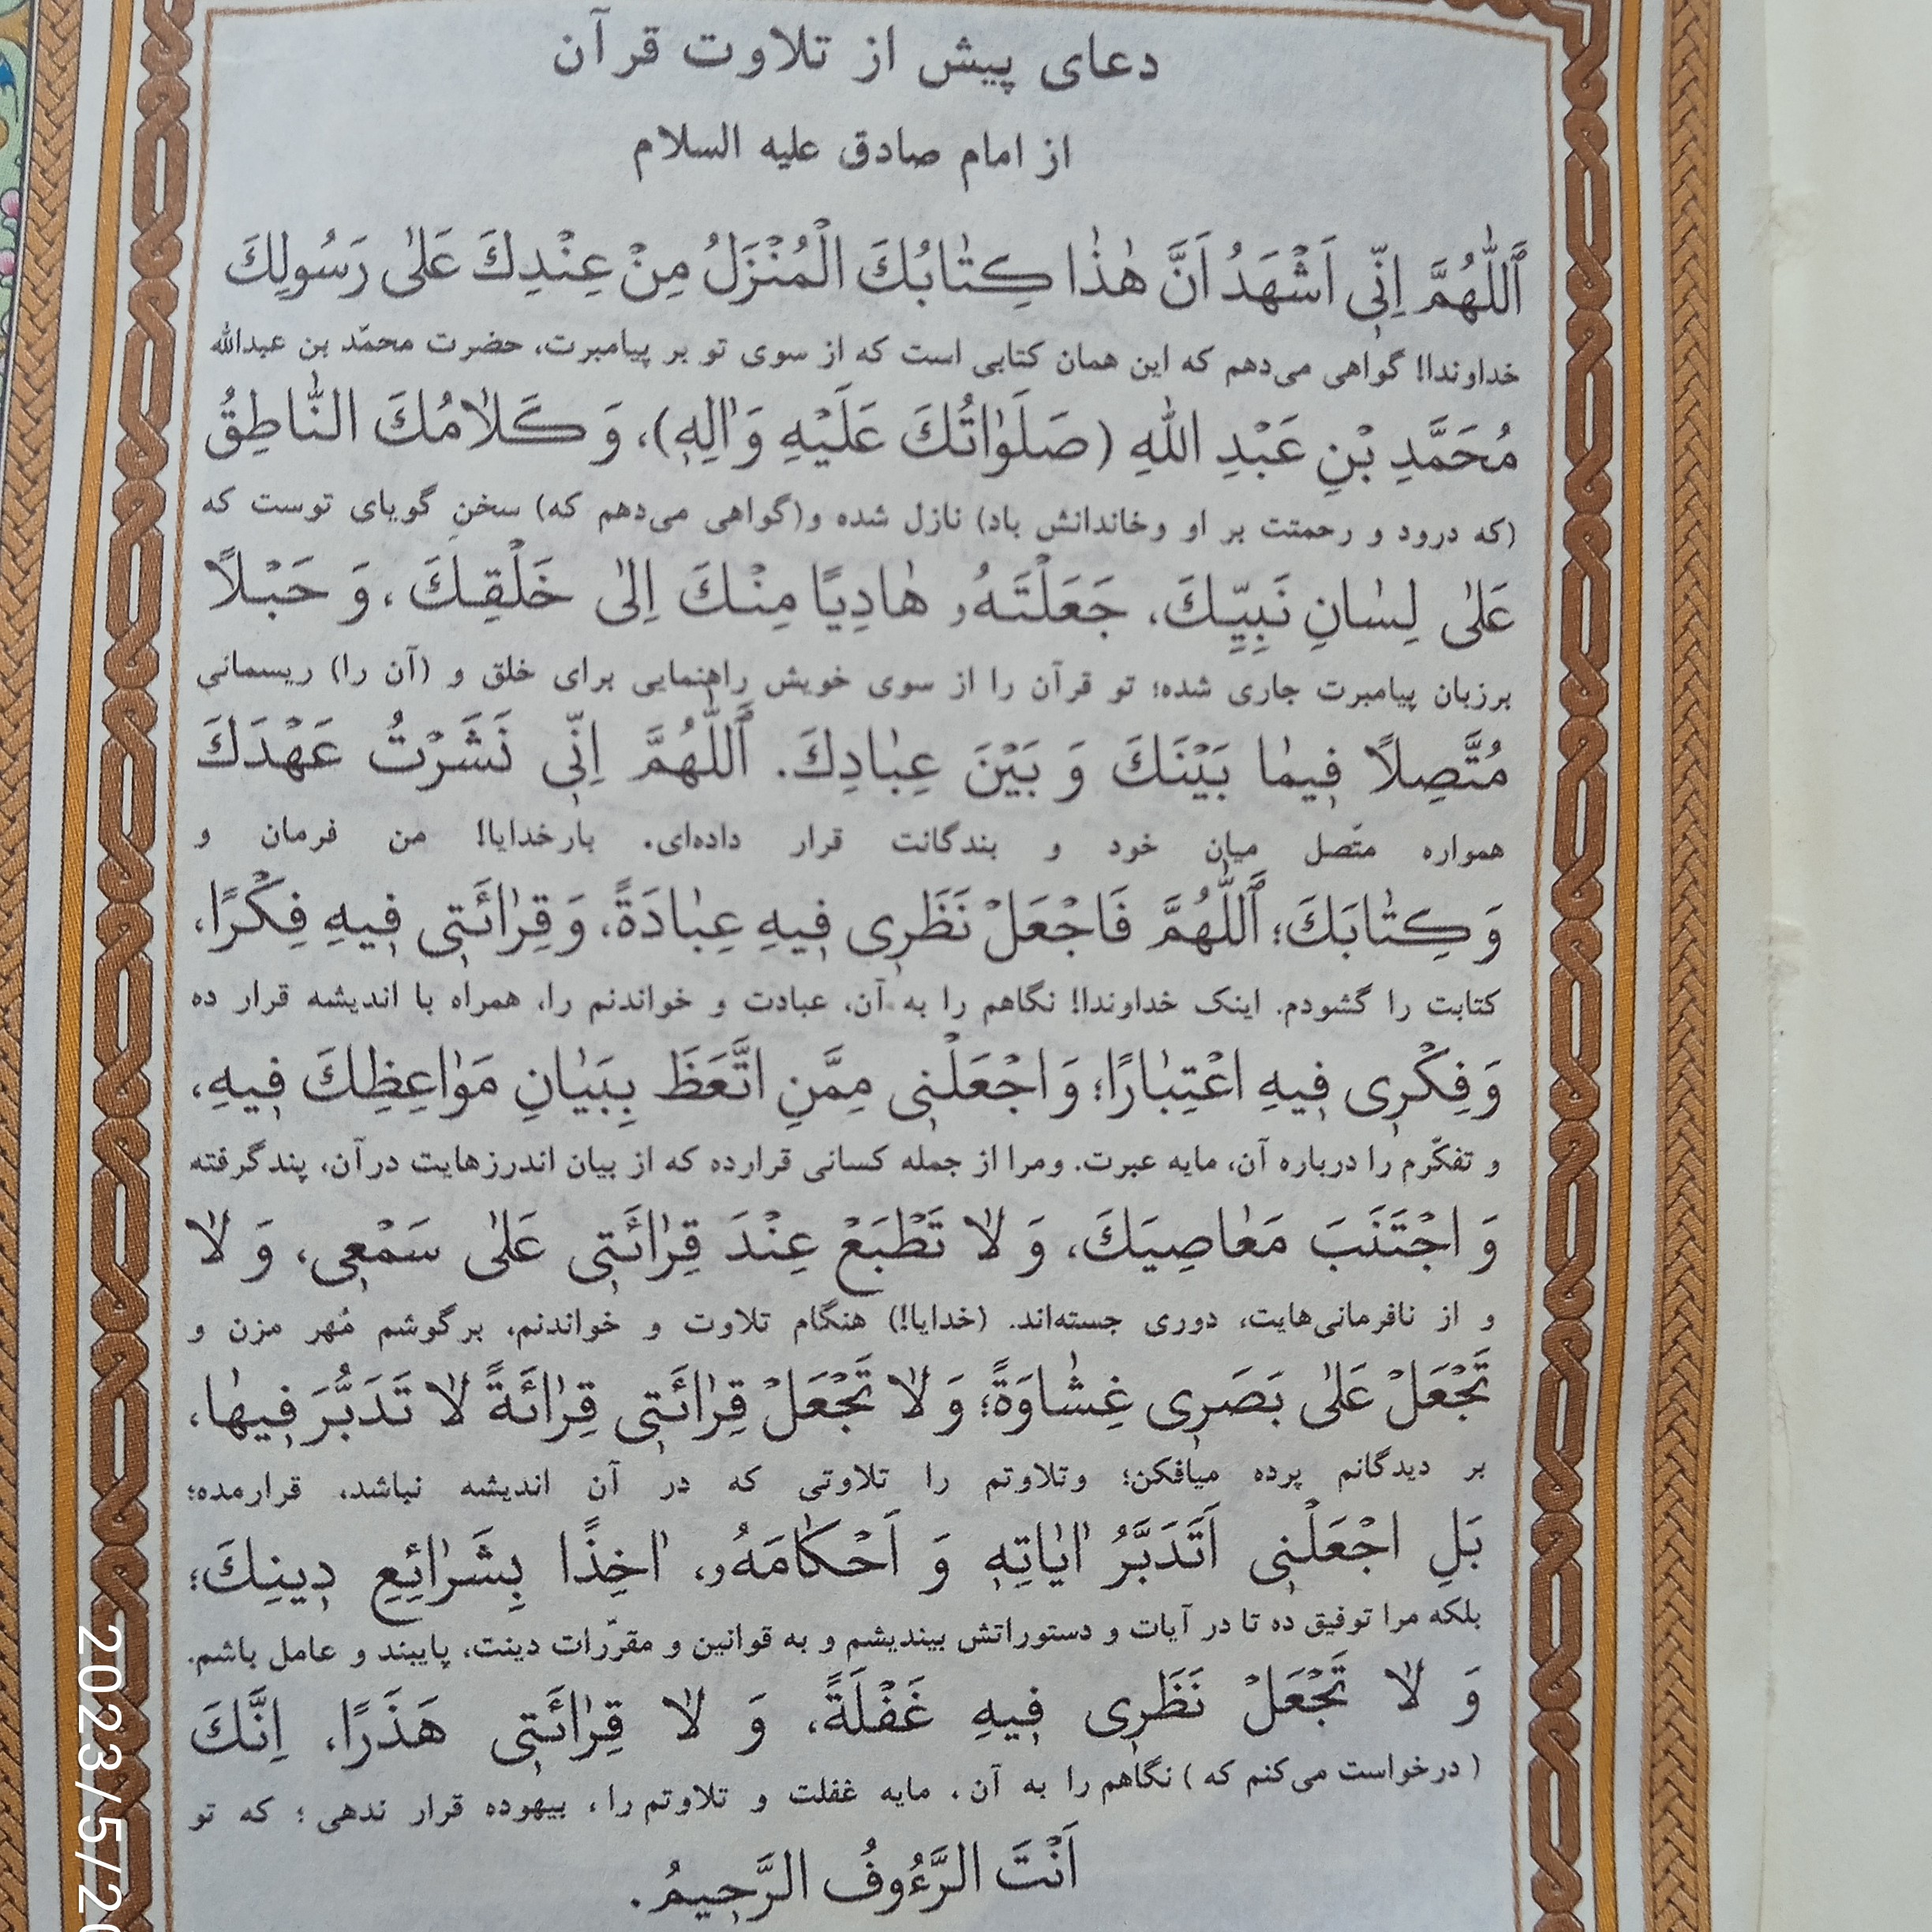 دعای پیش از تلاوت قرآن
از امام صادق علیه السلام
اَللّٰهُمَّ اِنّٖى اَشْهَدُ اَنَّ هٰذٰا كِتٰابُكَ الْمُنْزَلُ مِنْ عِنْدِكَ عَلىٰ رَسُولِكَ
خداوندا! گواهی می‌دهم که این همان کتابی است که از سوی تو بر پیامبرت، حضرت محمّد بن عبدالله
مُحَمَّدِ بْنِ عَبْدِ اللّٰهِ (صَلَوٰاتُكَ عَلَيْهِ وَ اٰلِهٖ)، وَ كَلٰامُكَ النّٰاطِقُ
(که درود و رحمتت بر او و خاندانش باد) نازل شده و(گواهی می‌دهم که) سخنِ گویای توست که
عَلىٰ لِسٰانِ نَبِيِّكَ، جَعَلْتَهُۥ هٰادِيًا مِنْكَ اِلىٰ خَلْقِكَ، وَ حَبْلًا
برزبان پیامبرت جاری شده؛ تو قرآن را از سوی خویش راهنمایی برای خلق و (آن را) ریسمانی
مُتَّصِلًا فٖيمٰا بَيْنَكَ وَ بَيْنَ عِبٰادِكَ. اَللّٰهُمَّ اِنّٖى نَشَرْتُ عَهْدَكَ
همواره متّصل میان خود و بندگانت قرار داده‌ای. بارخدایا! من فرمان و
وَ كِتٰابَكَ؛ اَللّٰهُمَّ فَاجْعَلْ نَظَرٖى فٖيهِ عِبٰادَةً، وَ قِرٰائَتٖى فٖيهِ فِكْرًا،
کتابت را گشودم. اینک خداوندا! نگاهم را به آن، عبادت و خواندنم را، همراه با اندیشه قرار ده
وَ فِكْرٖى فٖيهِ اعْتِبٰارًا؛ وَ اجْعَلْنٖى مِمَّنِ اتَّعَظَ بِبَيٰانِ مَوٰاعِظِكَ فٖيهِ،
و تفکّرم را درباره آن، مایه عبرت. ومرا از جمله کسانی قرارده که از بیان اندرزهایت درآن، پندگرفته
وَ اجْتَنَبَ مَعٰاصِيَكَ، وَ لٰا تَطْبَعْ عِنْدَ قِرٰائَتٖى عَلىٰ سَمْعٖى، وَ لٰا
و از نافرمانی‌هایت، دوری جسته‌اند. (خدایا!) هنگام تلاوت و خواندنم، برگوشم مُهر مزن و
تَجْعَلْ عَلىٰ بَصَرٖى غِشٰاوَةً؛ وَ لٰا تَجْعَلْ قِرٰائَتٖى قِرٰائَةً لٰا تَدَبُّرَ فٖيهٰا،
بر دیدگانم پرده میافکن؛ وتلاوتم را تلاوتی که در آن اندیشه نباشد، قرارمده؛
بَلِ اجْعَلْنٖى اَتَدَبَّرُ اٰيٰاتِهٖ وَ اَحْكٰامَهُۥ، اٰخِذًا بِشَرٰائِعِ دٖينِكَ؛
بلکه مرا توفیق ده تا در آیات و دستوراتش بیندیشم و به قوانین و مقرّرات دینت، پایبند و عامل باشم.
وَ لٰا تَجْعَلْ نَظَرٖى فٖيهِ غَفْلَةً، وَ لٰا قِرٰائَتٖى هَذَرًا، اِنَّكَ
(درخواست می‌کنم که) نگاهم را به آن، مایه غفلت و تلاوتم را، بیهوده قرار ندهی؛ که تو
اَنْتَ الرَّءُوفُ الرَّحٖيمُ.
2023/5/2